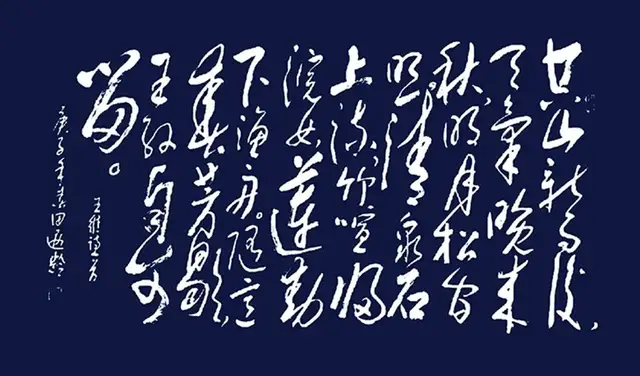 空山新雨後，
天氣晚来
秋。明月松间
照清泉石
上流竹喧归
浣女莲动
下渔舟。随意
春芳歇，
王孙自可
留。
王维诗
庚子年